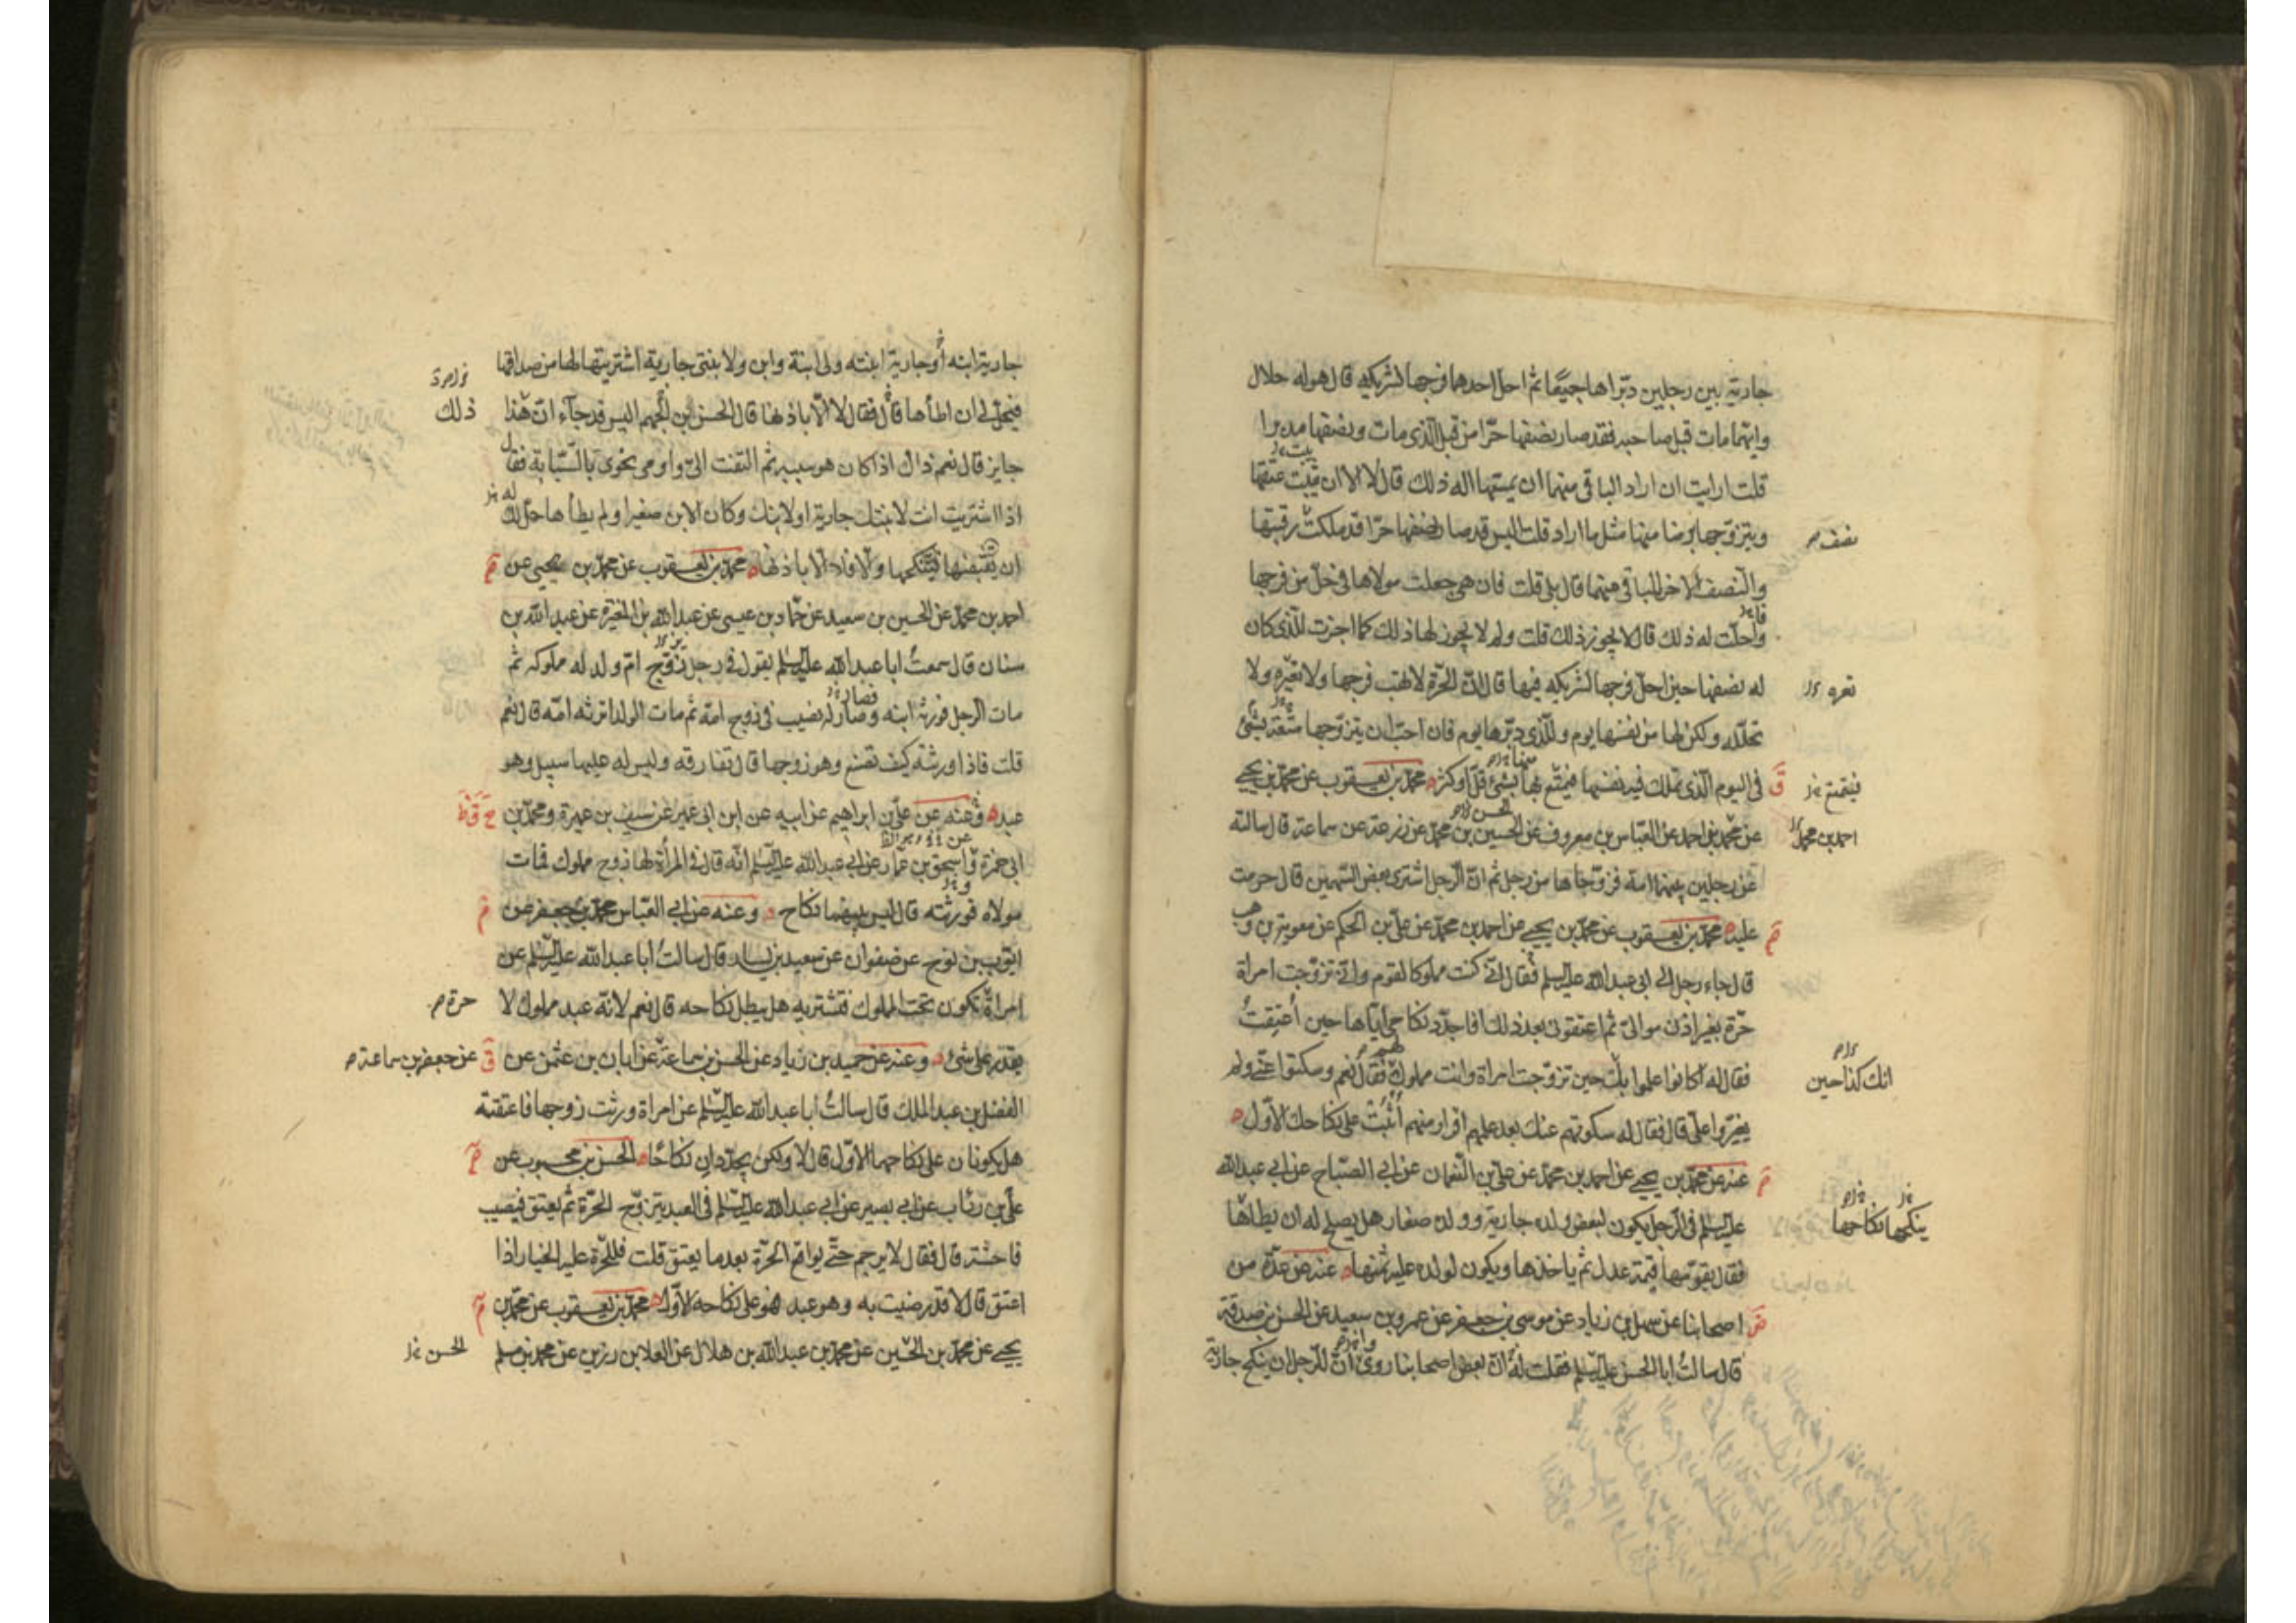 جارية بين رجلين دبّراها جميعًا ثم احلّ احدهما فرجها لشريكه قال هو له حلال
وايّهما مات قبل صاحبه فقد صار نصفها حرّا من قبل الذى مات ونصفها مدبرا
قلت ارايت ان اراد الباقى منهما ان يمسّها اله ذلك قال لا الا ان يثبت عتقها
ويتزوّجها برضا منها مثل ما اراد قلت اليس قد صار نصفها حرّا قد ملكت رقبتها
نصف
والنصف الاخر للباقى منهما قال بلى قلت فان هى جعلت مولاها فى حلّ من فرجها
واحلّت له ذلك قال لا يجوز ذلك قلت ولم لا يجوز لها ذلك كما اجزت للّذى كان
له نصفها حين احلّ فرجها لشريكه فيها قال انّ الحرّة لا تهب فرجها ولا تعيره ولا
تعره
تحلّله ولكن لها من نفسها يوم وللّذى دبّرها يوم فان احبّ ان يتزوّجها متعة بشئ
فى اليوم الّذى تملك فيه نفسها فيتمتّع بها بشئ قلّ او كثر محمّد بن يعقوب عن محمّد بن يحيى
فيتمتع
عن محمّد بن احمد عن العبّاس بن معروف عن الحسين بن محمّد عن زرعة عن سماعة قال سالته
احمد بن محمد
عن رجلين بينهما امة فزوّجاها من رجل ثم انّ الرجل اشترى بعض السّهمين قال حرمت
عليه محمّد بن يعقوب عن محمّد بن يحيى عن احمد بن محمّد عن علىّ بن الحكم عن معوية بن وهب
قال جاء رجل الى ابى عبد الله عليه السلم فقال انّى كنت مملوكا لقوم وانّى تزوّجت امراة
حرّة بغير اذن موالىّ ثم اعتقونى بعد ذلك افاجدّد نكاحى ايّاها حين اُعتِقتُ
فقال له اكانوا علموا بك حين تزوّجت امراة وانت مملوك فقال نعم وسكتوا عنّى ولم
انك كذا حين
يغيّروا علىّ قال فقال له سكوتهم عنك بعد علمهم اقرار منهم اُثبُت على نكاحك الاوّل
عنه عن محمّد بن يحيى عن احمد بن محمّد عن علىّ بن النّعمان عن ابى الصّباح عن ابى عبد الله
عليه السلم فى الرّجل يكون لبعض ولده جارية وولده صغار هل يصلح له ان يطاها
ينكحها نكاحها
فقال يقوّمها قيمة عدل ثم ياخذها ويكون لولده عليه ثمنها عنه عن عدّة من
اصحابنا عن سهل بن زياد عن موسى بن جعفر عن عمرو بن سعيد عن الحسن بن صدقة
قال سالتُ ابا الحسن عليه السلم فقلت له انّ بعض اصحابنا روى انّ للرّجل ان ينكح جارية
جارية ابنه أو جارية ابنته ولى ابنة وابن ولابنتى جارية اشتريتها لها من صداقها
فيحلّ لى ان اطأها قال فقال لا الّا باذنها قال الحسن بن الجهم اليس قد جآء انّ هذا
ذلك
جايز قال نعم ذاك اذا كان هو سببه ثم التفت الىّ واومى نحوى بالسّبّابة فقال
اذا اشتريت انت لابنتك جارية او لابنك وكان الابن صغيرا ولم يطأها حلّ لك
ان تقبضها فتنكحها والّا فلا الّا باذنهما محمّد بن يعقوب عن محمّد بن يحيى عن
احمد بن محمّد عن الحسين بن سعيد عن حمّاد بن عيسى عن عبد الله بن المغيرة عن عبد الله بن
سنان قال سمعتُ ابا عبد الله عليه السلم يقول فى رجل تزوّج امّ ولد له مملوكه ثم
مات الرجل فورثه ابنه وصار له نصيب فى زوج امّه ثم مات الولد اترثه امّه قال نعم
قلت فاذا ورثته كيف تصنع وهو زوجها قال تفارقه وليس له عليها سبيل وهو
عبد وعنه عن علىّ بن ابراهيم عن ابيه عن ابن ابى عمير عن سيف بن عميرة ومحمّد بن
ابى حمزة واسحق بن عمّار عن ابى عبد الله عليه السلم انّه قال فى المرأة لها زوج مملوك فمات
مولاه فورثته قال ليس بينهما نكاح وعنه عن ابى العبّاس محمّد بن جعفر عن
ايّوب بن نوح عن صفوان عن سعيد بن يسار قال سالتُ ابا عبد الله عليه السّلم عن
امراة تكون تحت المملوك فتشتريه هل يبطل نكاحه قال نعم لانّه عبد مملوك لا
حرة
يقدر على شئ وعنه عن حميد بن زياد عن الحسن بن سماعة عن ابان بن عثمن عن
عن جعفر بن سماعة
الفضل بن عبد الملك قال سالتُ ابا عبد الله عليه السّلم عن امراة ورثت زوجها فاعتقته
هل يكونان على نكاحهما الاوّل قال لا ولكن يجدّدان نكاحًا الحسن بن محبوب عن
علىّ بن رئاب عن ابى بصير عن ابى عبد الله عليه السّلم فى العبد يتزوّج الحرّة ثم يعتق فيصيب
فاحشة قال فقال لا يرجم حتّى يواقع الحرّة بعد ما يعتق قلت فللحرّة عليه الخيار اذا
اعتق قال لا قد رضيت به وهو عبد فهو على نكاحه الاوّل محمّد بن يعقوب عن محمّد بن
يحيى عن محمّد بن الحسين عن محمّد بن عبد الله بن هلال عن العلا بن رزين عن محمّد بن مسلم
الحسن